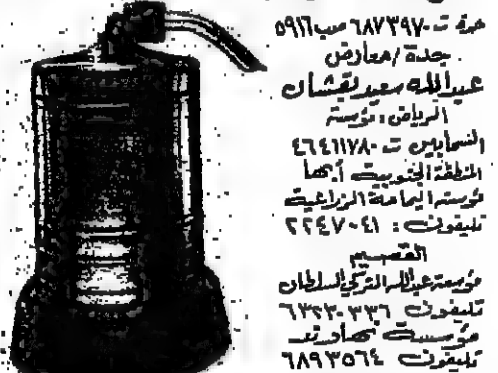 جدة ت ٦٨٧٣٩٧٠ صب ٥٩١٦
جدة / معارض
عبدالله سعيد نقشان
الرياض : مؤسسة
ت ٤٦٤١١٧٨٠
المنطقة الجنوبية أبها
مؤسسة اليمامة الزراعية
تليفون : ٢٢٤٧٠٤١
القصيم
مؤسسة عبدالله التركي السلطان
تليفون ٦٣٢٣٠٣٣٦
مؤسسة
تليفون ٦٨٩٣٥٦٤